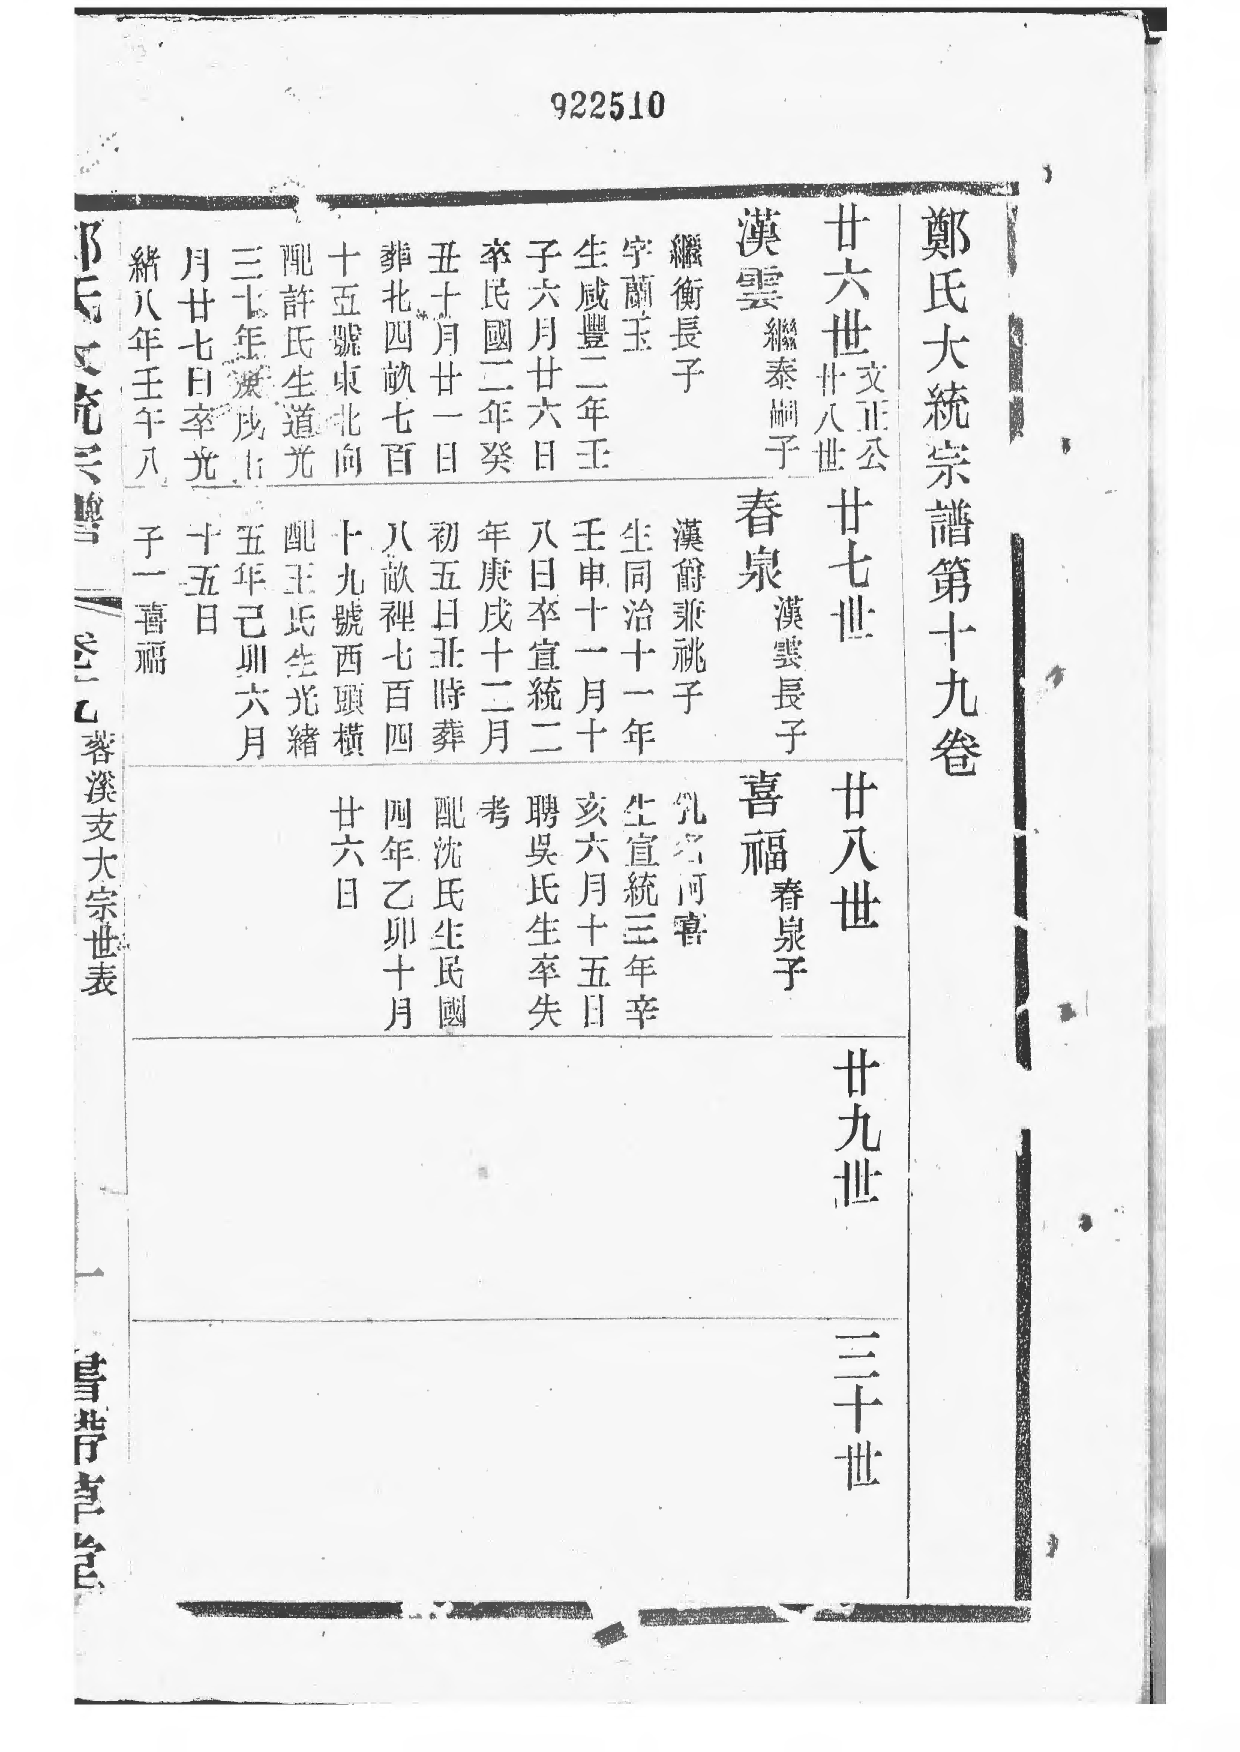 922510
鄭氏大統宗譜第十九卷
廿六世
文正公
廿八世
漢雲
繼泰嗣子
繼衡長子
字蘭玉
生咸豐二年壬
子六月廿六日
卒民國二年癸
丑十月廿一日
葬北四畝七百
十五號東北向
配許氏生道光
三十年庚戌十
月廿七日卒光
緒八年壬午八
廿七世
春泉
漢雲長子
漢爵兼祧子
生同治十一年
壬申十一月十
八日卒宣統二
年庚戌十二月
初五日丑時葬
八畝裡七百四
十九號西頭橫
配王氏生光緒
五年己卯六月
十五日
子一喜福
廿八世
喜福
春泉子
乳名河喜
生宣統三年辛
亥六月十五日
聘吳氏生卒失
考
配沈氏生民國
四年乙卯十月
廿六日
廿九世
三十世
鄭氏大統宗譜
卷十九
蓉溪支大宗世表
一
書帶草堂